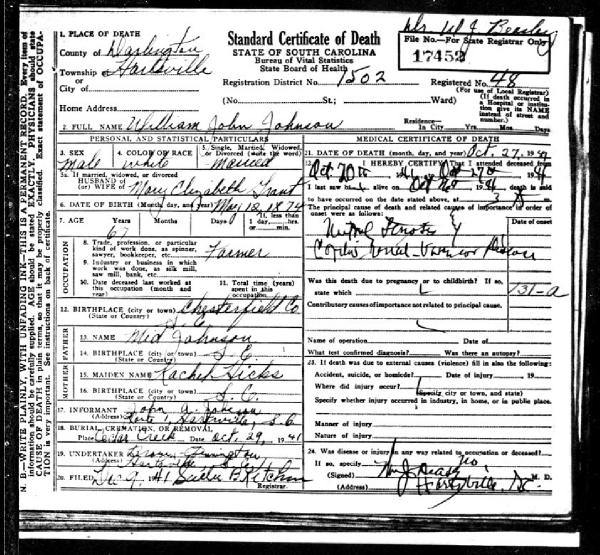 1. PLACE OF DEATH
County of Darlington
Township of Hartsville
or
City of
Home Address
Standard Certificate of Death
STATE OF SOUTH CAROLINA
Bureau of Vital Statistics
State Board of Health
Registration District No. 1502
(No. St.; Ward)
W J Beasley
File No.—For State Registrar Only
17452
Registered No. 48
(For use of Local Registrar)
(If death occurred in a Hospital or institution give its NAME instead of street and number.)
Residence
In City Yrs. Mos. Days
2. FULL NAME William John Johnson
PERSONAL AND STATISTICAL PARTICULARS
3. SEX male
4. COLOR OR RACE white
5. Single, Married, Widowed, or Divorced (write the word) Married
5a. If married, widowed, or divorced
HUSBAND of
(or) WIFE of Mary Elizabeth Grant
6. DATE OF BIRTH (Month, day, year) May 12, 1874
7. AGE Years 67 Months Days If less than 1 day, hrs. or min.
OCCUPATION
8. Trade, profession, or particular kind of work done, as spinner, sawyer, bookkeeper, etc. Farmer
9. Industry or business in which work was done, as silk mill, saw mill, bank, etc.
10. Date deceased last worked at this occupation (month and year)
11. Total time (years) spent in this occupation
12. BIRTHPLACE (city or town) Chesterfield Co
(State or Country) S. C.
FATHER
13. NAME Med Johnson
14. BIRTHPLACE (city or town) S. C.
(State or Country)
MOTHER
15. MAIDEN NAME Rachel Hicks
16. BIRTHPLACE (city or town) S. C.
(State or Country)
17. INFORMANT John A. Johnson
(Address) Route 1 Hartsville, S. C.
18. BURIAL, CREMATION, OR REMOVAL
Place Cedar Creek Date Oct. 29, 1941
19. UNDERTAKER
(Address) Hartsville
20. FILED Dec 9, 41
Registrar.
MEDICAL CERTIFICATE OF DEATH
21. DATE OF DEATH (month, day, and year) Oct. 27, 1941
22. I HEREBY CERTIFY, That I attended deceased from
Oct 20th 41 to Oct 27th 1941
I last saw h alive on Oct 1941 death is said
to have occurred on the date stated above, at 3
The principal cause of death and related causes in importance of order of onset were as follows:
Date of onset
Mitral Stenosis
Cardio-renal-vascular Disease
Was this death due to pregnancy or to childbirth? If so, state which
131-a
Contributory causes of importance not related to principal cause.
Name of operation Date of
What test confirmed diagnosis? Was there an autopsy?
23. If death was due to external causes (violence) fill in also the following:
Accident, suicide, or homicide? Date of injury , 19
Where did injury occur?
(Specify city or town, and state)
Specify whether injury occurred in industry, in home, or in public place.
Manner of injury
Nature of injury
24. Was disease or injury in any way related to occupation or deceased?
If so, specify No.
(Signed) M. D.
(Address) Hartsville, S.C.
N. B.—WRITE PLAINLY, WITH UNFADING INK—THIS IS A PERMANENT RECORD. Every item of information should be carefully supplied. AGE should be stated EXACTLY. PHYSICIANS should state CAUSE OF DEATH in plain terms, so that it may be properly classified. Exact statement of OCCUPATION is very important. See instructions on back of certificate.